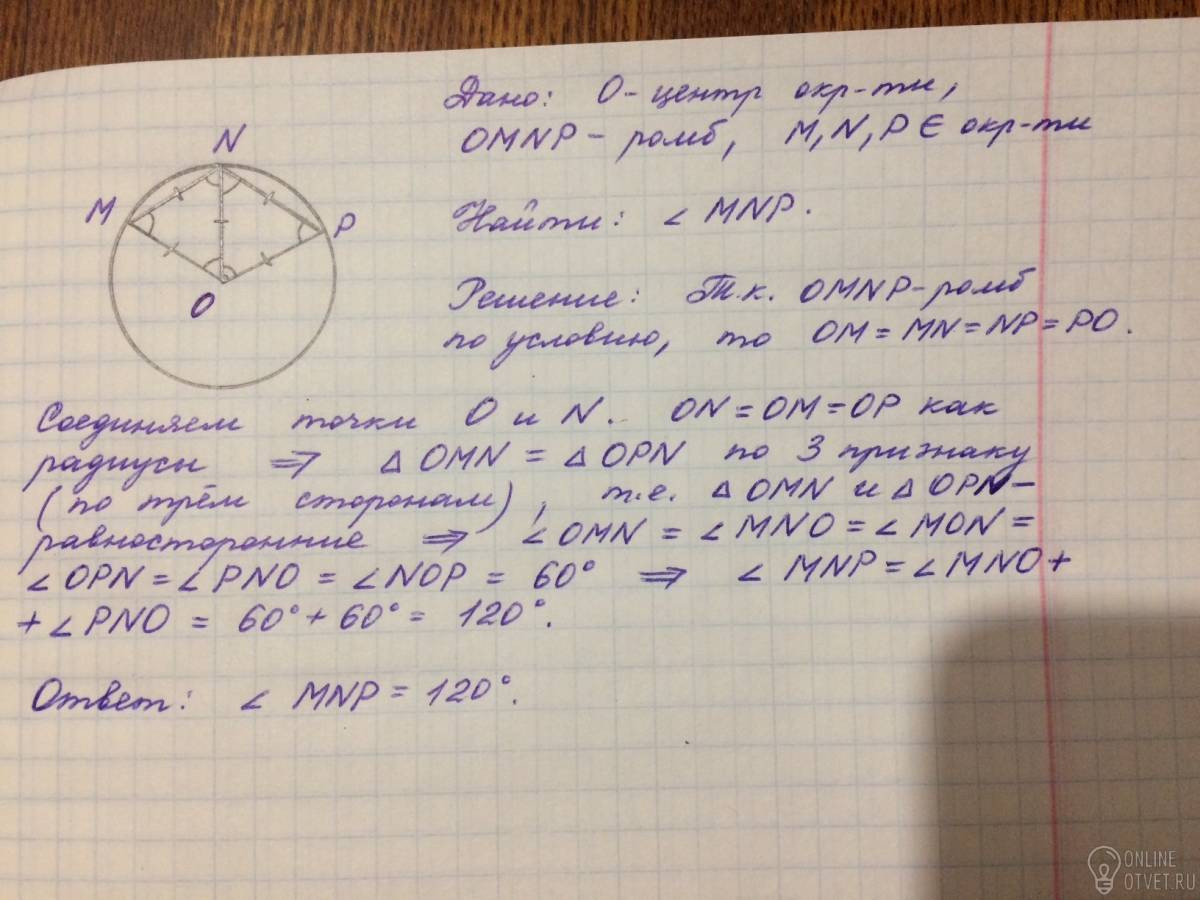 Дано: O - центр окр-ти,
OMNP - ромб, M, N, P ∈ окр-ти
N
M
P
O
Найти: ∠ MNP.
Решение: Т.к. OMNP - ромб
по условию, то OM = MN = NP = PO.
Соединяем точки O и N. ON = OM = OP как
радиусы ⇒ △ OMN = △ OPN по 3 признаку
(по трём сторонам), т.е. △ OMN и △ OPN -
равносторонние ⇒ ∠ OMN = ∠ MNO = ∠ MON =
∠ OPN = ∠ PNO = ∠ NOP = 60° ⇒ ∠ MNP = ∠ MNO +
+ ∠ PNO = 60° + 60° = 120°.
Ответ: ∠ MNP = 120°.
ONLINE
OTVET.RU